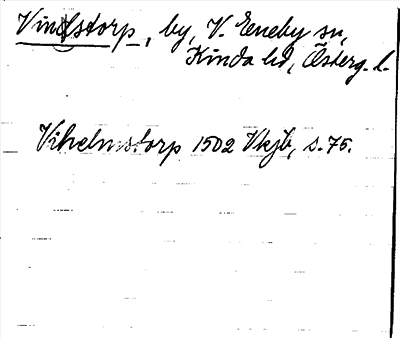 Vindstorp, by, V. Eneby sn,
Kinda hd, Österg. l.
Vihelmstorp 1502 Vkjb, s. 75.